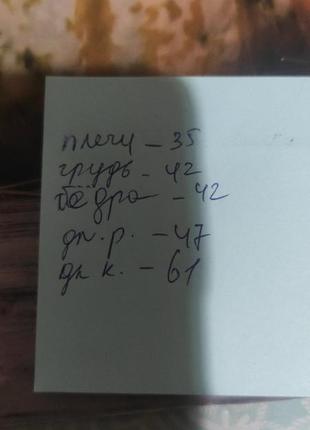 плечи - 35
грудь - 42
бёдра - 42
дл. р. - 47
дл к. - 61